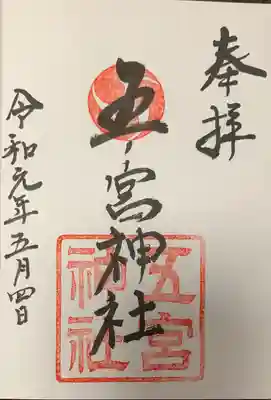 奉拝
五ノ宮神社
令和元年五月四日
五宮
神社